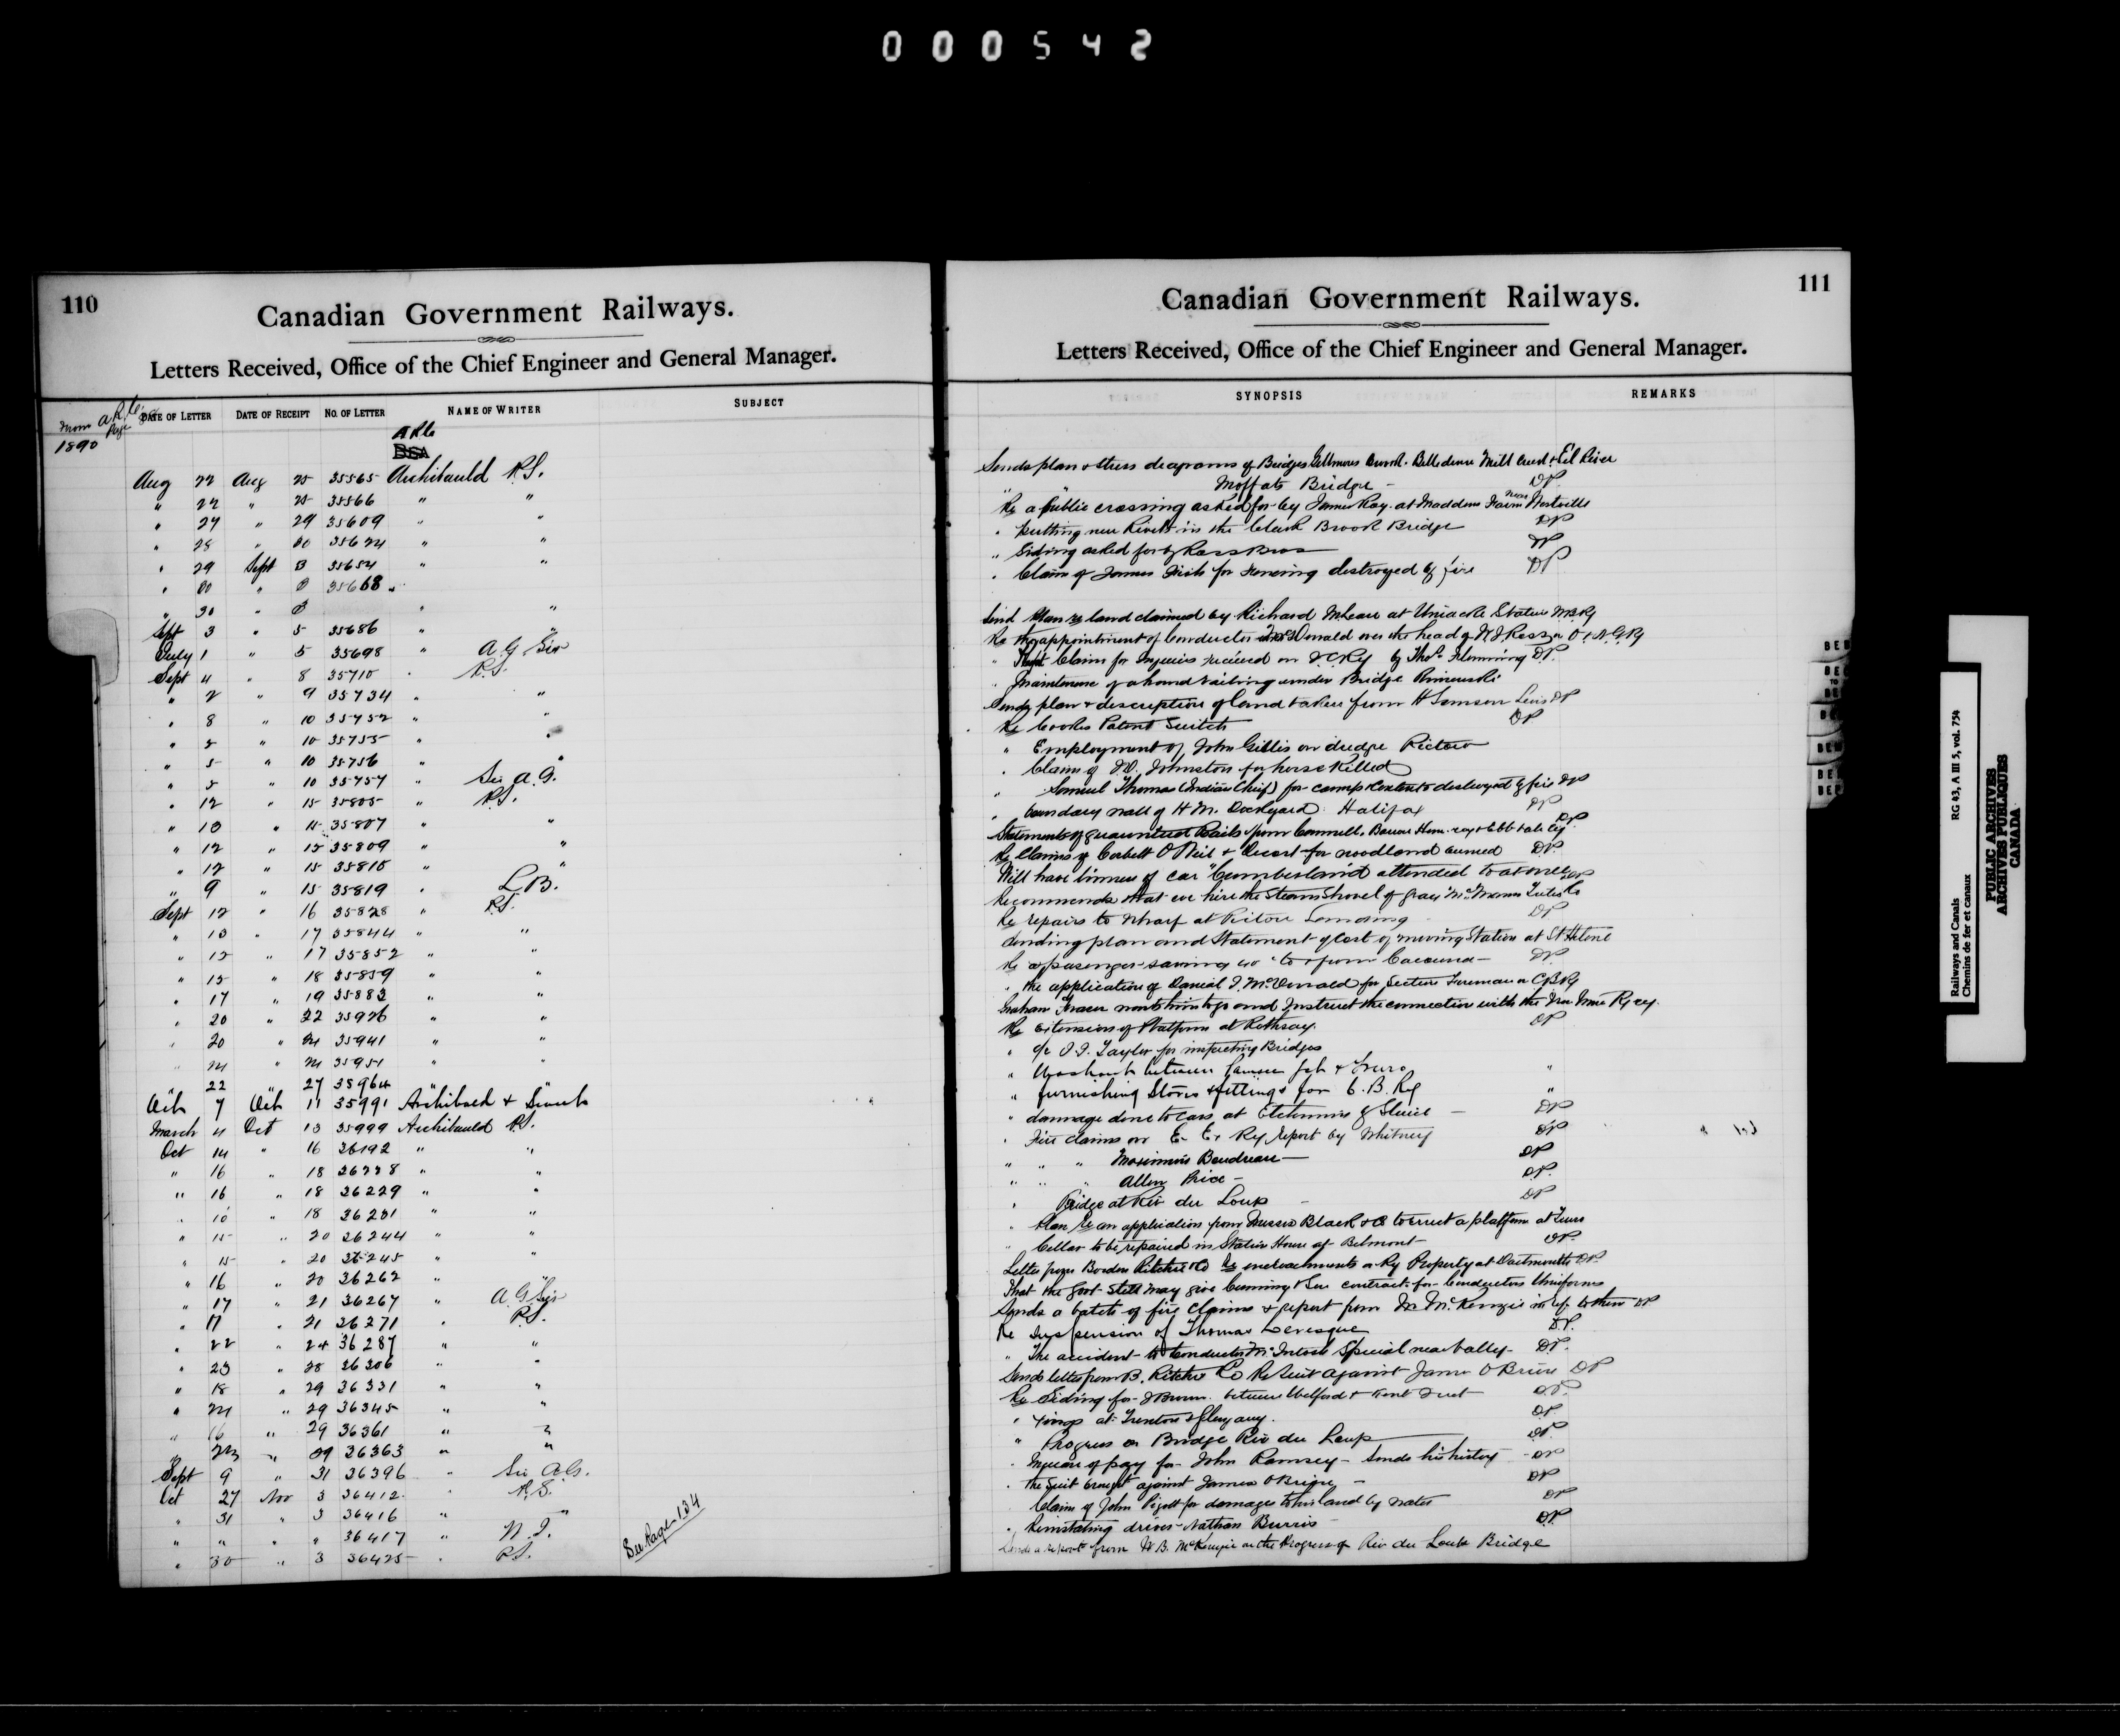 000542
110
Canadian Government Railways.
Letters Received, Office of the Chief Engineer and General Manager.
DATE OF LETTER DATE OF RECEIPT NO. OF LETTER NAME OF WRITER SUBJECT
1890
Aug 22 Aug 25 35565 Archibauld P.S.
" 22 " 25 35566 " "
" 27 " 29 35609 " "
" 28 " 30 35624 " "
" 29 Sept 3 35654 " "
" 30 " 3 35668 "
" 30 " 3 " "
Sept 3 " 5 35686 " "
July 1 " 5 35698 " A.G. Sir
Sept 4 " 8 35710 " P.S.
" 2 " 9 35734 " "
" 8 " 10 35752 " "
" 5 " 10 35755 " "
" 5 " 10 35756 " "
" 5 " 10 35757 " Sir A.G.
" 12 " 15 35805 " P.S.
" 13 " 15 35807 " "
" 12 " 15 35809 " "
" 12 " 15 35810 " "
" 9 " 15 35819 " L.B.
Sept 12 " 16 35828 " P.S.
" 13 " 17 35844 " "
" 15 " 17 35852 " "
" 15 " 18 35859 " "
" 17 " 19 35883 " "
" 20 " 22 35926 " "
" 20 " 24 35941 " "
" 24 " 24 35951 " "
22 27 35964
Oct 7 Oct 11 35991 Archibald +
March 4 Oct 13 35999 Archibauld P.S.
Oct 14 " 16 36192 " "
" 16 " 18 36228 " "
" 16 " 18 36229 " "
" 18 36231 " "
" 15 " 20 36244 " "
" 15 " 20 36245 " "
" 16 " 20 36262 " "
" 17 " 21 36267 " A.G. Sir
" 17 " 21 36271 " P.S.
" 22 " 24 36287 " "
" 23 " 28 36306 " "
" 18 " 29 36331 " "
" 24 " 29 36345 " "
" 16 " 29 36361 " "
" " 29 36363 " "
Sept 9 " 31 36396 " Sir A.G.
Oct 27 Nov 3 36412 " P.S.
" 31 " 3 36416 " "
" " " " 36417 "
" 30 " 3 36425 " P.S.
See Page 134
111
Canadian Government Railways.
Letters Received, Office of the Chief Engineer and General Manager.
SYNOPSIS REMARKS
Sends plan + stress diagrams of Bridges Brook. Belledune Mill Creek + Eel River
" " Moffats Bridge - DP
Re a public crossing asked for by James Ray at Maddens Farm near Westville
" Putting new Rivets in the Clark Brook Bridge DP
" Siding asked for by Ross Bros DP
" Claim of James Fish for Fencing destroyed by fire DP
Send Plan re land claimed by Richard McLean at Uniacke Station W.B.Ry
Re the appointment of Conductor McDonald over the head of Ross on O + N.G.Ry
" Claim for Injuries received on I.C.Ry by Thos. Flemming DP.
" Maintenance of a hand railing under Bridge Rimouski
Sends plan + description of land taken from H Samson Levis DP
Re Cooks Patent Switch DP
" Employment of John Gillis on dredge Pictou
" Claim of Johnston for horse killed
" Samuel Thomas (Indian Chief) for camp + contents destroyed by fire DP
" boundary wall of H.M. Dockyard. Halifax DP
Statements of Rails from Cammell, Barrow + Ebb Vale Coy DP
Re Claims of Corbett O'Neil + for woodland burned DP.
Will have linnen of car "Cumberland" attended to at once DP
Recommends that we hire the Steam Shovel of
Re repairs to Wharf at Pictou Landing DP
Sending plan and Statement of Cost of moving Station at St Helene
Re to + from Cacouna - DP.
" the application of Daniel McDonald for Section Foreman on C.B.Ry
Graham Fraser wants him to go and Instruct the connection with the
Re Extension of Platform at Rothesay. DP
" Taylor for inspecting Bridges
" Washout between + Truro "
" furnishing Stoves + fittings for C.B. Ry "
" damage done to cars at - DP
" Fire claims on E. Ex Ry report by Whitney DP
" " " Boudreau - DP
" " " Allen Price - DP.
" Bridge at Riv du Loup - DP
" Plan Re an application from Messrs Black + Co to erect a platform at Truro
" Cellar to be repaired in Station House at Belmont DP.
Letter from Borden Ritchie + Co re encroachments on Ry Property at Dartmouth DP.
That the Govt may give Cunning + Son contract for Conductors Uniforms
Sends a batch of fire claims + report from Mr McKenzie in ref to them DP
Re Suspension of Thomas Levesque DP.
" The accident to Conductor McIntosh Special near Valley - DP.
Sends letter from B. Ritchie + Co Re Suit against James O Brien DP
Re Siding for J Brown. between Welford + Kent DP.
" at Trenton + DP
" Progress on Bridge Riv du Loup DP.
" Increase of pay for John Ramsey - Sends his history - DP
" the Suit brought against James OBrien - DP
" Claim of John for damages to his land by water DP
" Reinstating driver Nathan Burris DP
Sends a report from W.B. McKenzie on the Progress of Riv du Loup Bridge
Railways and Canals
Chemins de fer et canaux
RG 43, A III 5, vol. 754
PUBLIC ARCHIVES
ARCHIVES PUBLIQUES
CANADA